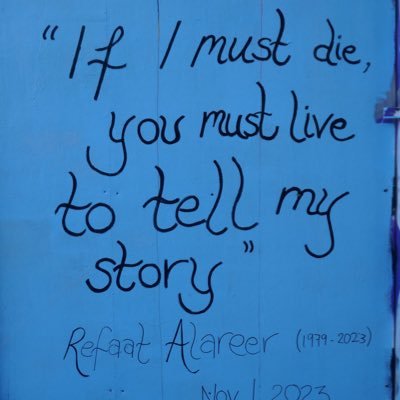 "If I must die,
you must live
to tell my
story"
Refaat Alareer (1979-2023)
Nov 1 2023